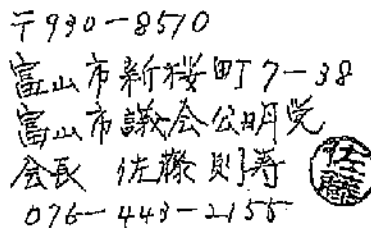 〒930-8510
富山市新桜町7-38
富山市議会公明党
会長 佐藤則寿
佐藤
076-443-2155